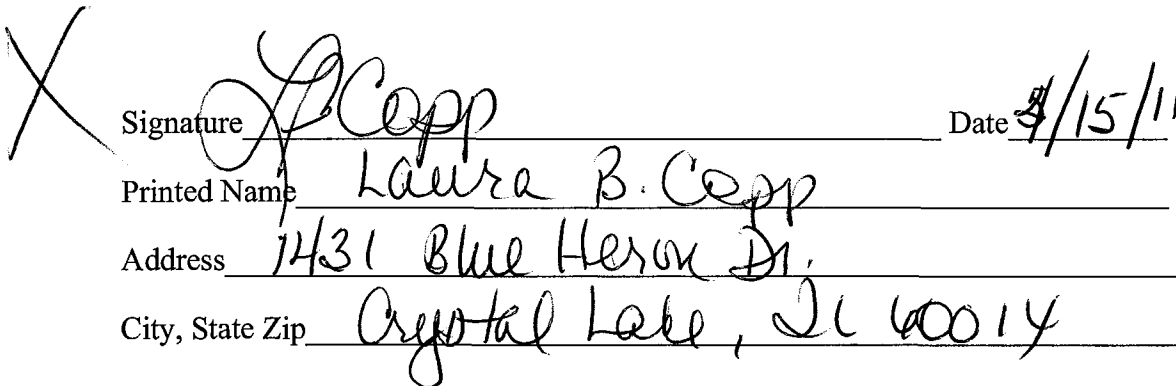 X
Signature LB Copp Date 3/15/11
Printed Name Laura B. Copp
Address 1431 Blue Heron Dr.
City, State Zip Crystal Lake, IL 60014